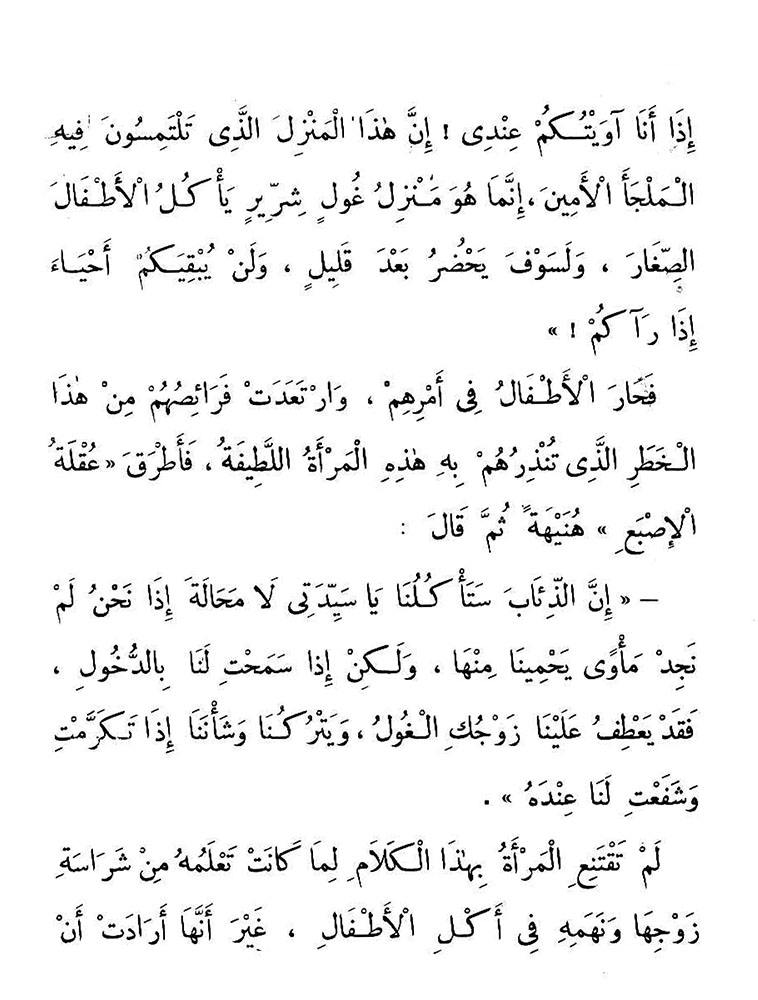 إِذَا أَنَا آوَيْتُكُمْ عِنْدِى ! إِنَّ هٰذَا الْمَنْزِلَ الَّذِى تَلْتَمِسُونَ فِيهِ
الْمَلْجَأَ الْأَمِينَ ، إِنَّمَا هُوَ مَنْزِلُ غُولٍ شِرِّيرٍ يَأْكُلُ الْأَطْفَالَ
الصِّغَارَ ، وَلَسَوْفَ يَحْضُرُ بَعْدَ قَلِيلٍ ، وَلَنْ يُبْقِيَكُمْ أَحْيَاءَ
إِذَا رَآكُمْ ! »
فَحَارَ الْأَطْفَالُ فِى أَمْرِهِمْ ، وَارْتَعَدَتْ فَرَائِصُهُمْ مِنْ هٰذَا
الْخَطَرِ الَّذِى تُنْذِرُهُمْ بِهِ هٰذِهِ الْمَرْأَةُ اللَّطِيفَةُ ، فَأَطْرَقَ « عُقْلَةُ
الْإِصْبَعِ » هُنَيْهَةً ثُمَّ قَالَ :
– « إِنَّ الذِّئَابَ سَتَأْكُلُنَا يَا سَيِّدَتِى لَا مَحَالَةَ إِذَا نَحْنُ لَمْ
نَجِدْ مَأْوًى يَحْمِينَا مِنْهَا ، وَلَكِنْ إِذَا سَمَحْتِ لَنَا بِالدُّخُولِ ،
فَقَدْ يَعْطِفُ عَلَيْنَا زَوْجُكِ الْغُولُ ، وَيَتْرُكُنَا وَشَأْنَنَا إِذَا تَكَرَّمْتِ
وَشَفَعْتِ لَنَا عِنْدَهُ » .
لَمْ تَقْتَنِعِ الْمَرْأَةُ بِهٰذَا الْكَلَامِ لِمَا كَانَتْ تَعْلَمُهُ مِنْ شَرَاسَةِ
زَوْجِهَا وَنَهَمِهِ فِى أَكْلِ الْأَطْفَالِ ، غَيْرَ أَنَّهَا أَرَادَتْ أَنْ